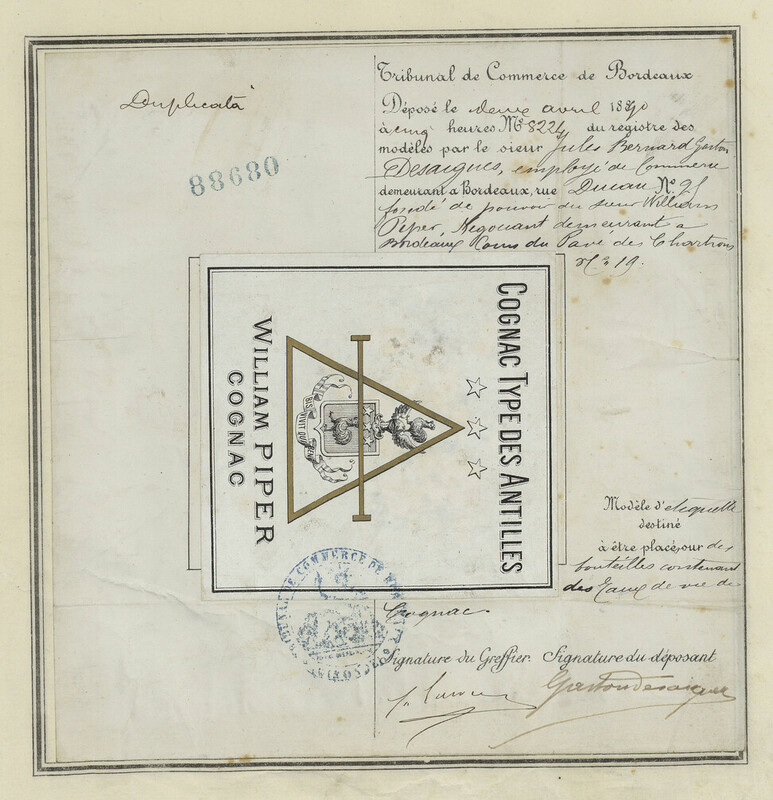 Duplicata
88680
Tribunal de Commerce de Bordeaux
Déposé le deux avril 1890
à cinq heures No 8224 du registre des
modèles par le sieur Jules Bernard Gaston
Desaigues, employé de Commerce
demeurant à Bordeaux, rue Ducau No 25
fondé de pouvoir du sieur William
Piper, Négociant demeurant à
Bordeaux Cours du Pavé des Chartrons
No 19.
COGNAC TYPE DES ANTILLES
BIS VIVIT QUI BENE
WILLIAM PIPER
COGNAC
Modèle d'etiquette
destiné
à être placé sur des
bouteilles contenant
des Eaux de vie de
Cognac
TRIBUNAL DE COMMERCE DE BORDEAUX
Signature du Greffier. Signature du déposant
Gaston Desaigues